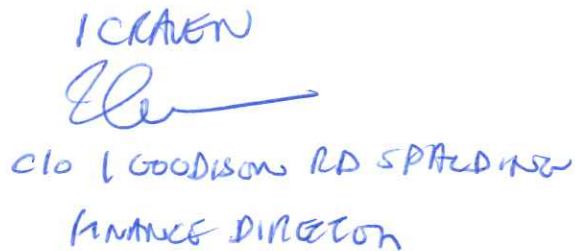 I CRAVEN
C/O 1 GOODISON RD SPALDING
FINANCE DIRECTOR